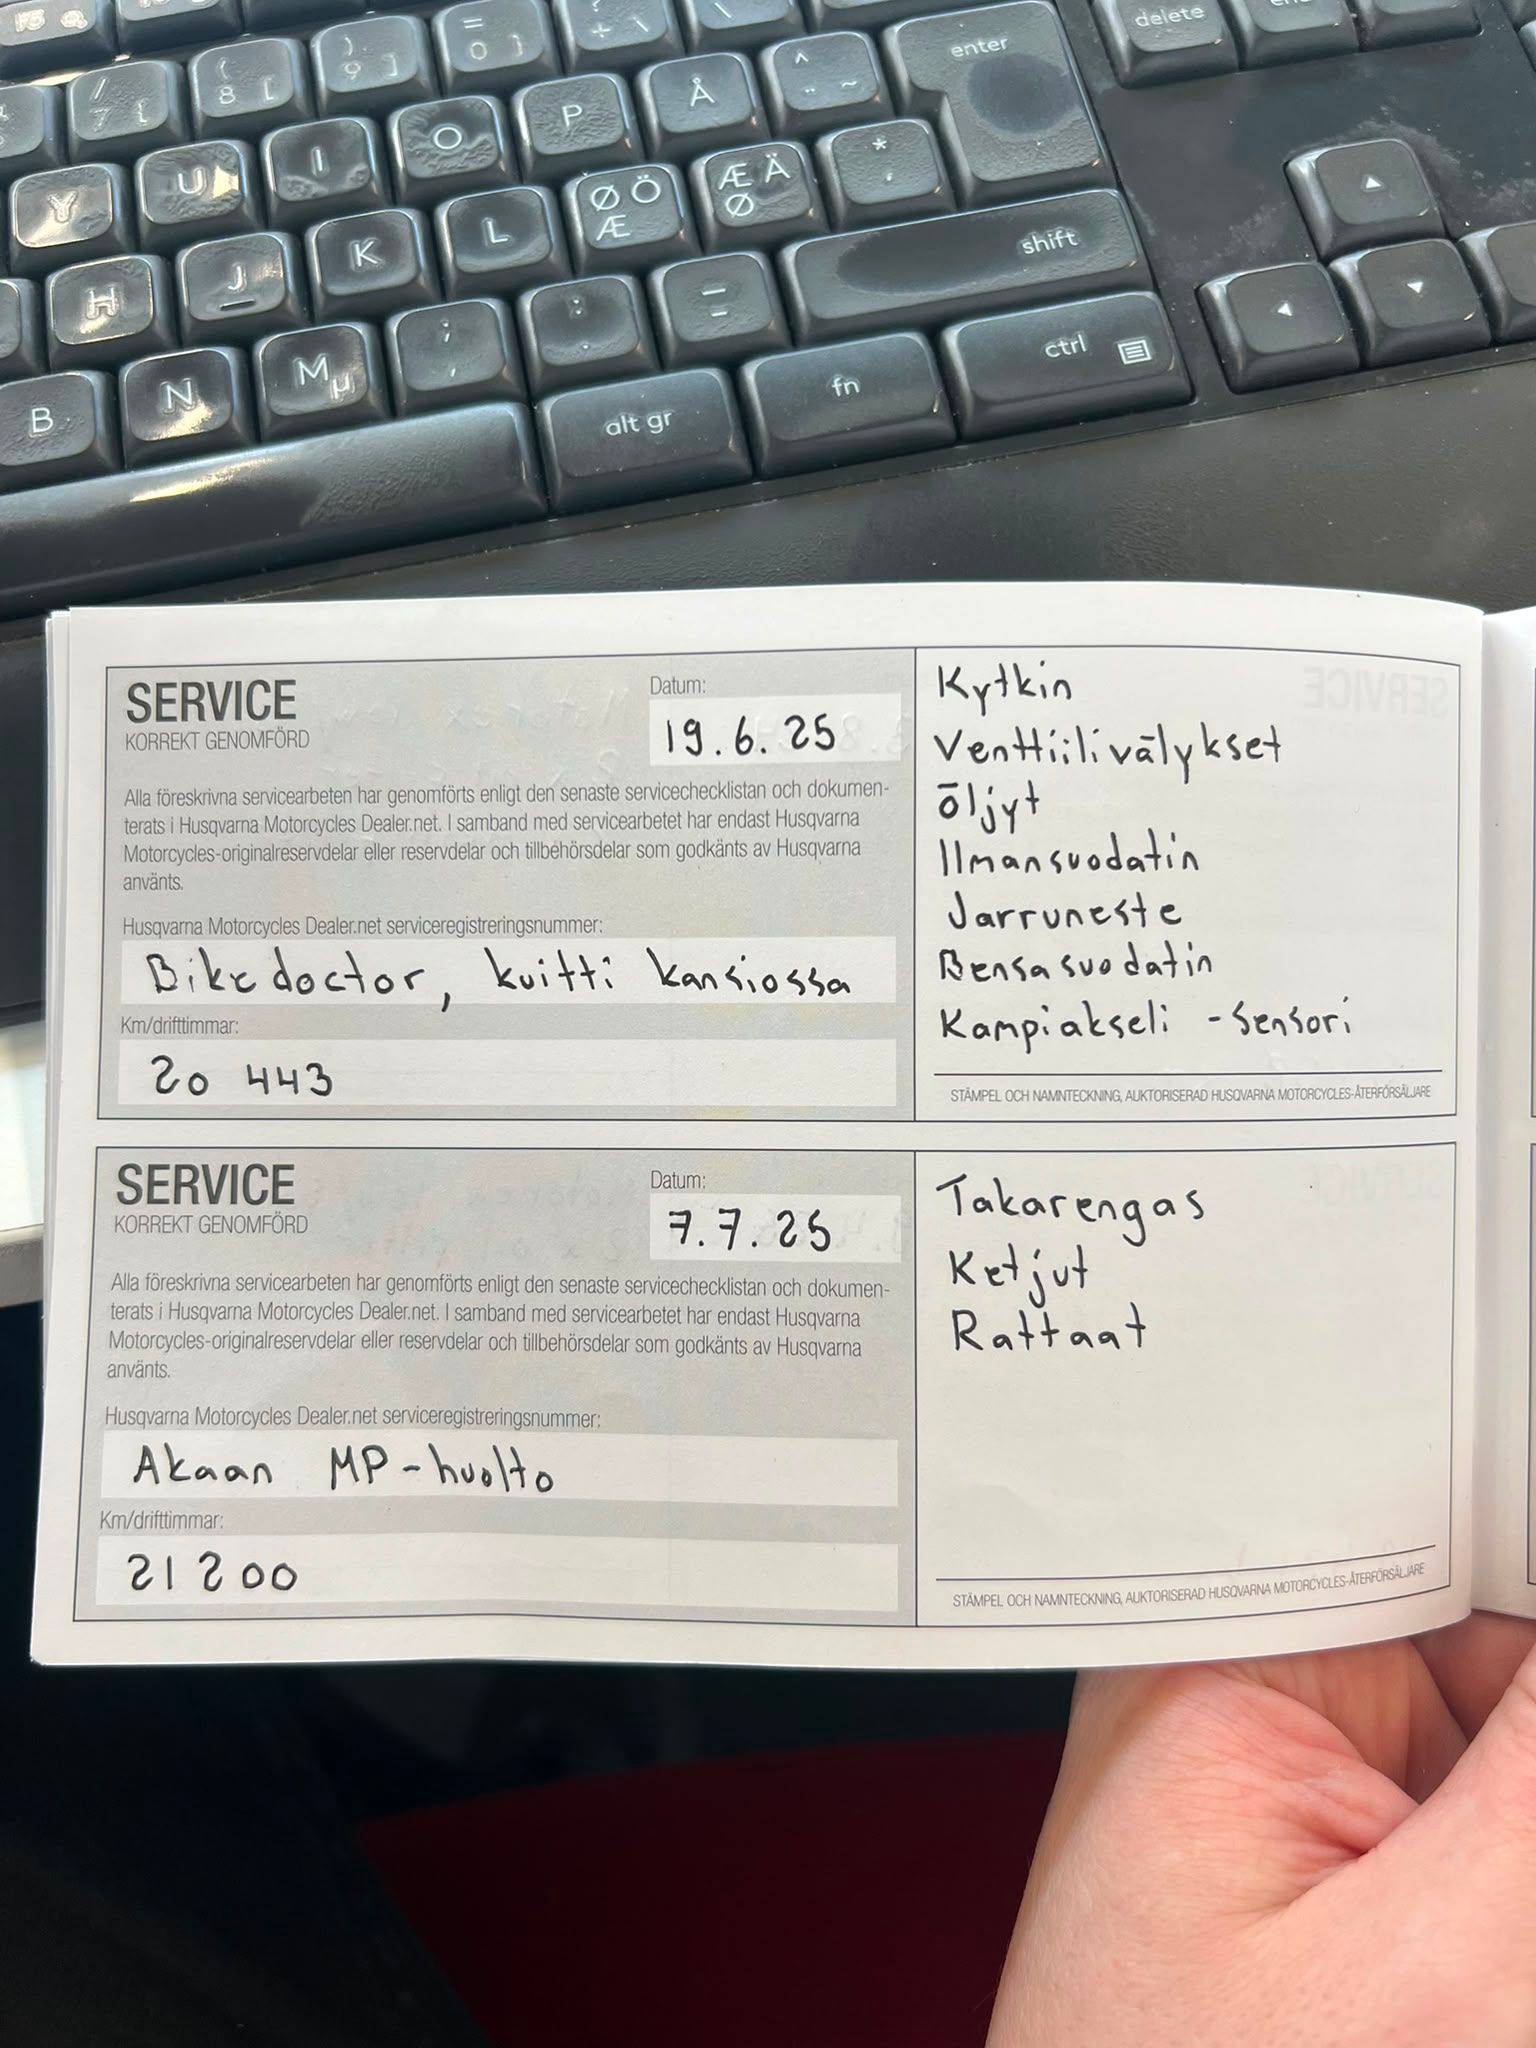 = 0 }
) 9 ]
( 8 [
/ 7 {
+ \
delete
enter
Y U I O P Å ^ ¨ ~
H J K L Ø Ö Æ Æ Ä Ø * '
B N M µ ; , : . _ - shift
alt gr fn ctrl
SERVICE
KORREKT GENOMFÖRD
Datum:
19.6.25
Alla föreskrivna servicearbeten har genomförts enligt den senaste servicechecklistan och dokumen-
terats i Husqvarna Motorcycles Dealer.net. I samband med servicearbetet har endast Husqvarna
Motorcycles-originalreservdelar eller reservdelar och tillbehörsdelar som godkänts av Husqvarna
använts.
Husqvarna Motorcycles Dealer.net serviceregistreringsnummer:
Bikedoctor, kuitti kansiossa
Km/drifttimmar:
20 443
Kytkin
Venttiilivälykset
Öljyt
Ilmansuodatin
Jarruneste
Bensasuodatin
Kampiakseli -sensori
STÄMPEL OCH NAMNTECKNING, AUKTORISERAD HUSQVARNA MOTORCYCLES-ÅTERFÖRSÄLJARE
SERVICE
KORREKT GENOMFÖRD
Datum:
7.7.25
Alla föreskrivna servicearbeten har genomförts enligt den senaste servicechecklistan och dokumen-
terats i Husqvarna Motorcycles Dealer.net. I samband med servicearbetet har endast Husqvarna
Motorcycles-originalreservdelar eller reservdelar och tillbehörsdelar som godkänts av Husqvarna
använts.
Husqvarna Motorcycles Dealer.net serviceregistreringsnummer:
Akaan MP-huolto
Km/drifttimmar:
21200
Takarengas
Ketjut
Rattaat
STÄMPEL OCH NAMNTECKNING, AUKTORISERAD HUSQVARNA MOTORCYCLES-ÅTERFÖRSÄLJARE